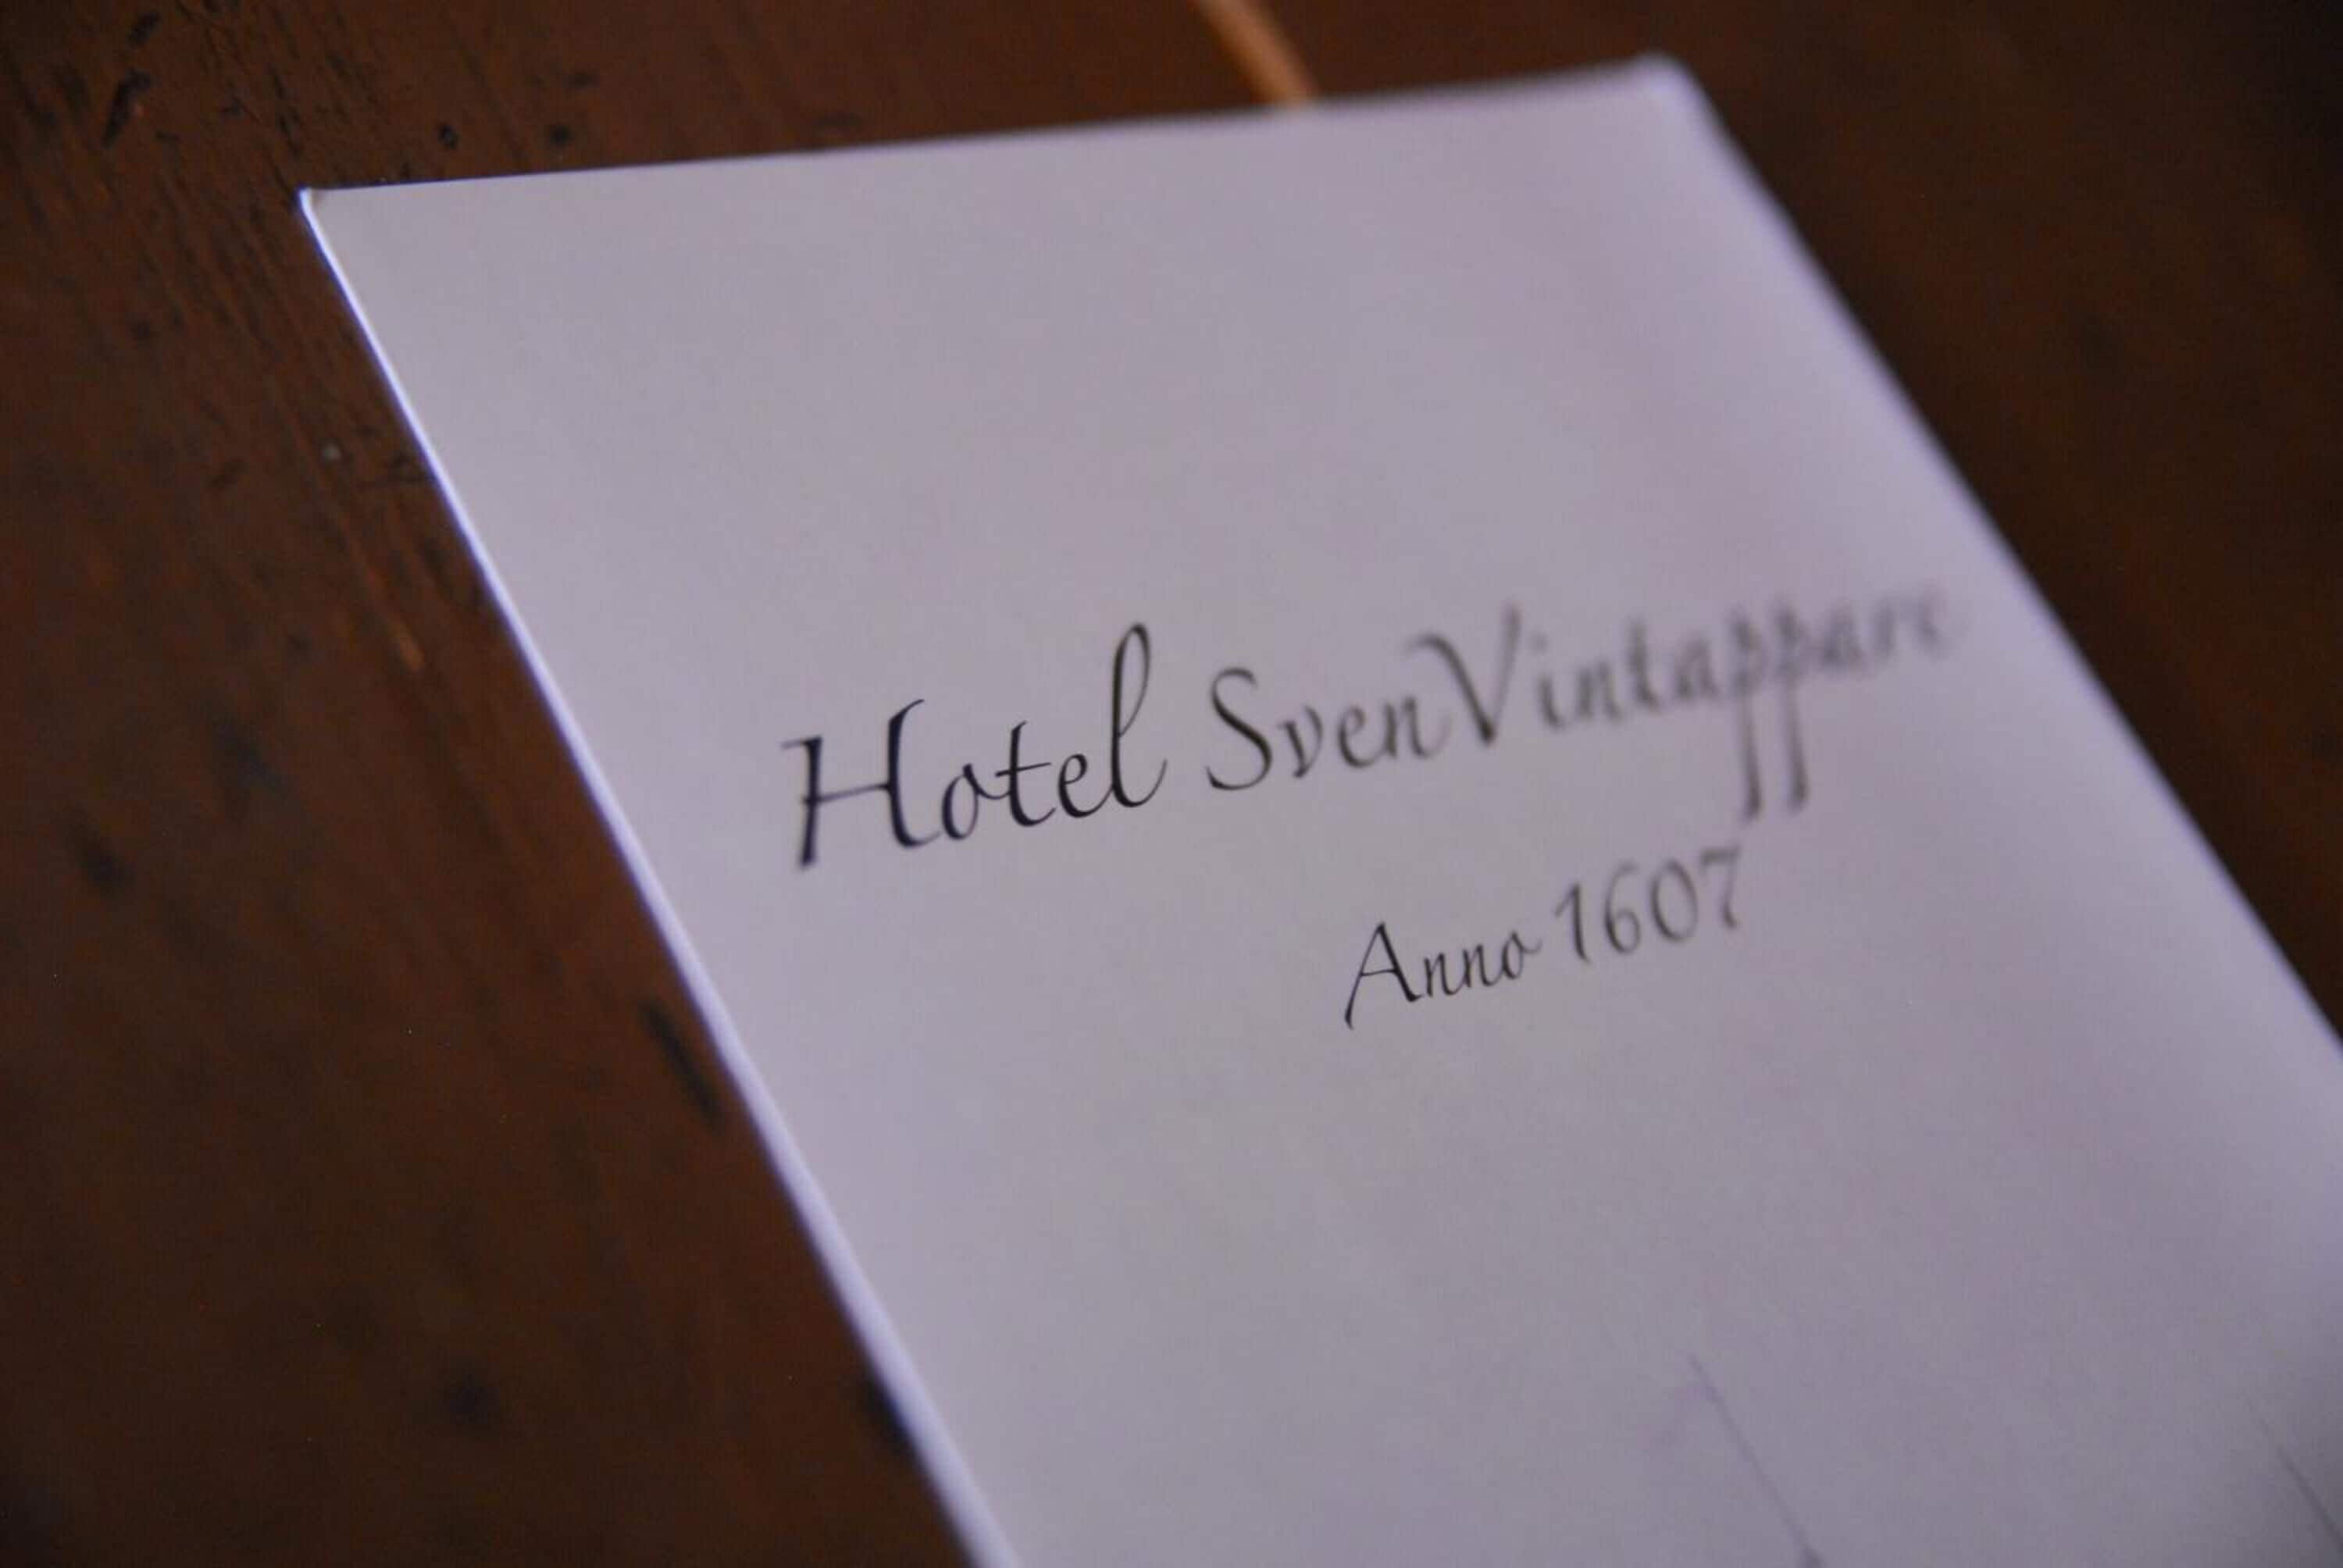 Hotel Sven Vintappare
Anno 1607